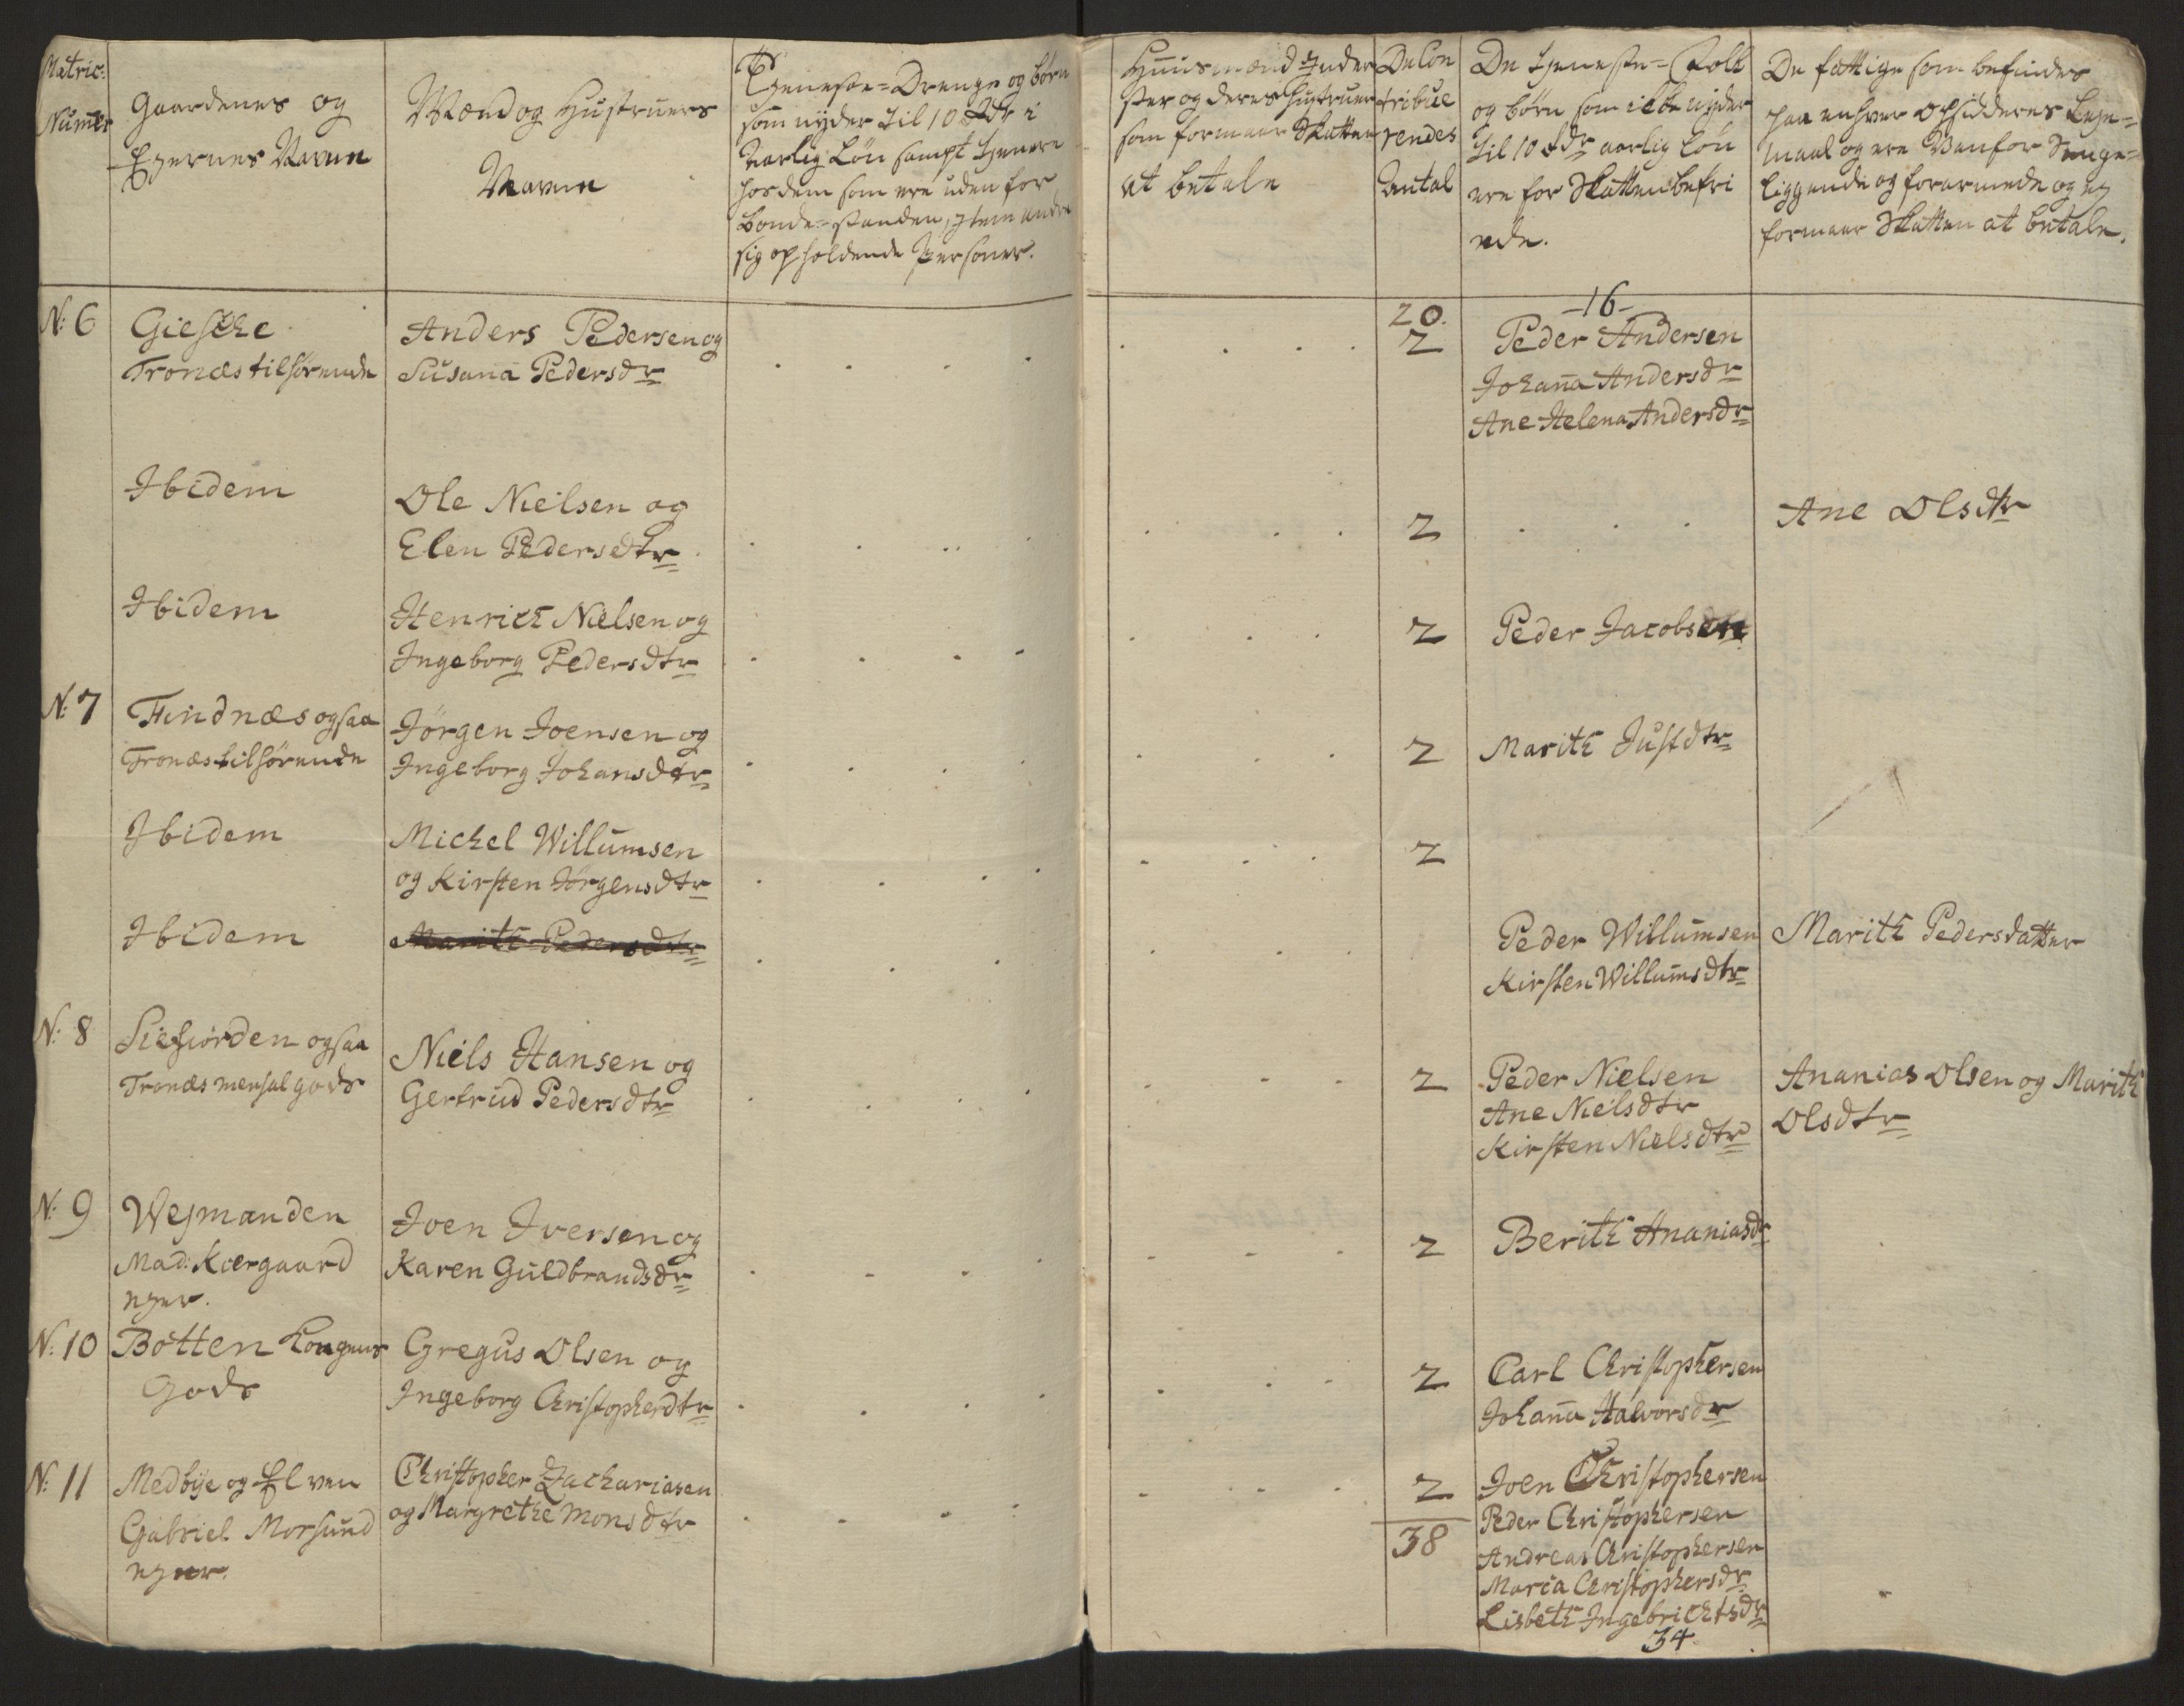 Matric:
Numer
Gaardenes og
Ejernes Navne
Mænd og Hustruers
Navne
Tjeneste-Drenge og børn
som nyder til 10 Rdr i
Aarlig Løn sampt tjenere
hos dem som ere uden for
Bonde-standen, item andre
sig opholdende Personer.
Huusmænd Inder
ster og deres Hustruer
som formaar Skatten
at betale
De Con
tribue
rendes
Antal
De Tjeneste-Folk
og børn som icke nyder
til 10 Rdr aarlig Løn
ere for Skatten befri
ede.
De fattige som befindes
paa enhver Opsidderes Leje-
maal og ere Vanfør Senge-
liggende og forarmede og ej
formaar Skatten at betale.
N: 6
Giesche
Tronæs tilhørende
Anders Pedersen og
Susana Pedersdr
20.
2
-16-
Peder Andersen
Johana Andersdr
Ane Helena Andersdr
Ibidem
Ole Nielsen og
Elen Pedersdtr
2
Ane Olsdtr
Ibidem
Henrich Nielsen og
Ingeborg Pedersdtr
2
Peder Jacobsen
N: 7
Findnæs ogsaa
Tronæs tilhørende
Jørgen Joensen og
Ingeborg Johansdtr
2
Marith Justdtr
Ibidem
Michel Willumsen
og Kirsten Jørgensdtr
2
Ibidem
Marith Pedersdtr
Peder Willumsen
Kirsten Willumsdtr
Marith Pedersdatter
N: 8
Siefiorden ogsaa
Tronæs mensal gods
Niels Hansen og
Gertrud Pedersdtr
2
Peder Nielsen
Ane Nielsdtr
Kirsten Nielsdtr
Ananias Olsen og Marith
Olsdtr
N: 9
Wejmanden
Mad: Kiergaard
ejer.
Joen Iversen og
Karen Guldbrandsdr
2
Berith Ananiasdr
N: 10
Botten Kongens
Gods
Gregus Olsen og
Ingeborg Christopherdtr
2
Carl Christophersen
Johana Halvorsdr
N: 11
Medbye og Elven
Gabriel Morsund
ejer.
Christopher Zachariasen
og Margrethe Monsdtr
2
38
Joen Christophersen
Peder Christophersen
Andreas Christophersen
Maria Christophersdr
Lisbeth Ingebrichtsdr
34.